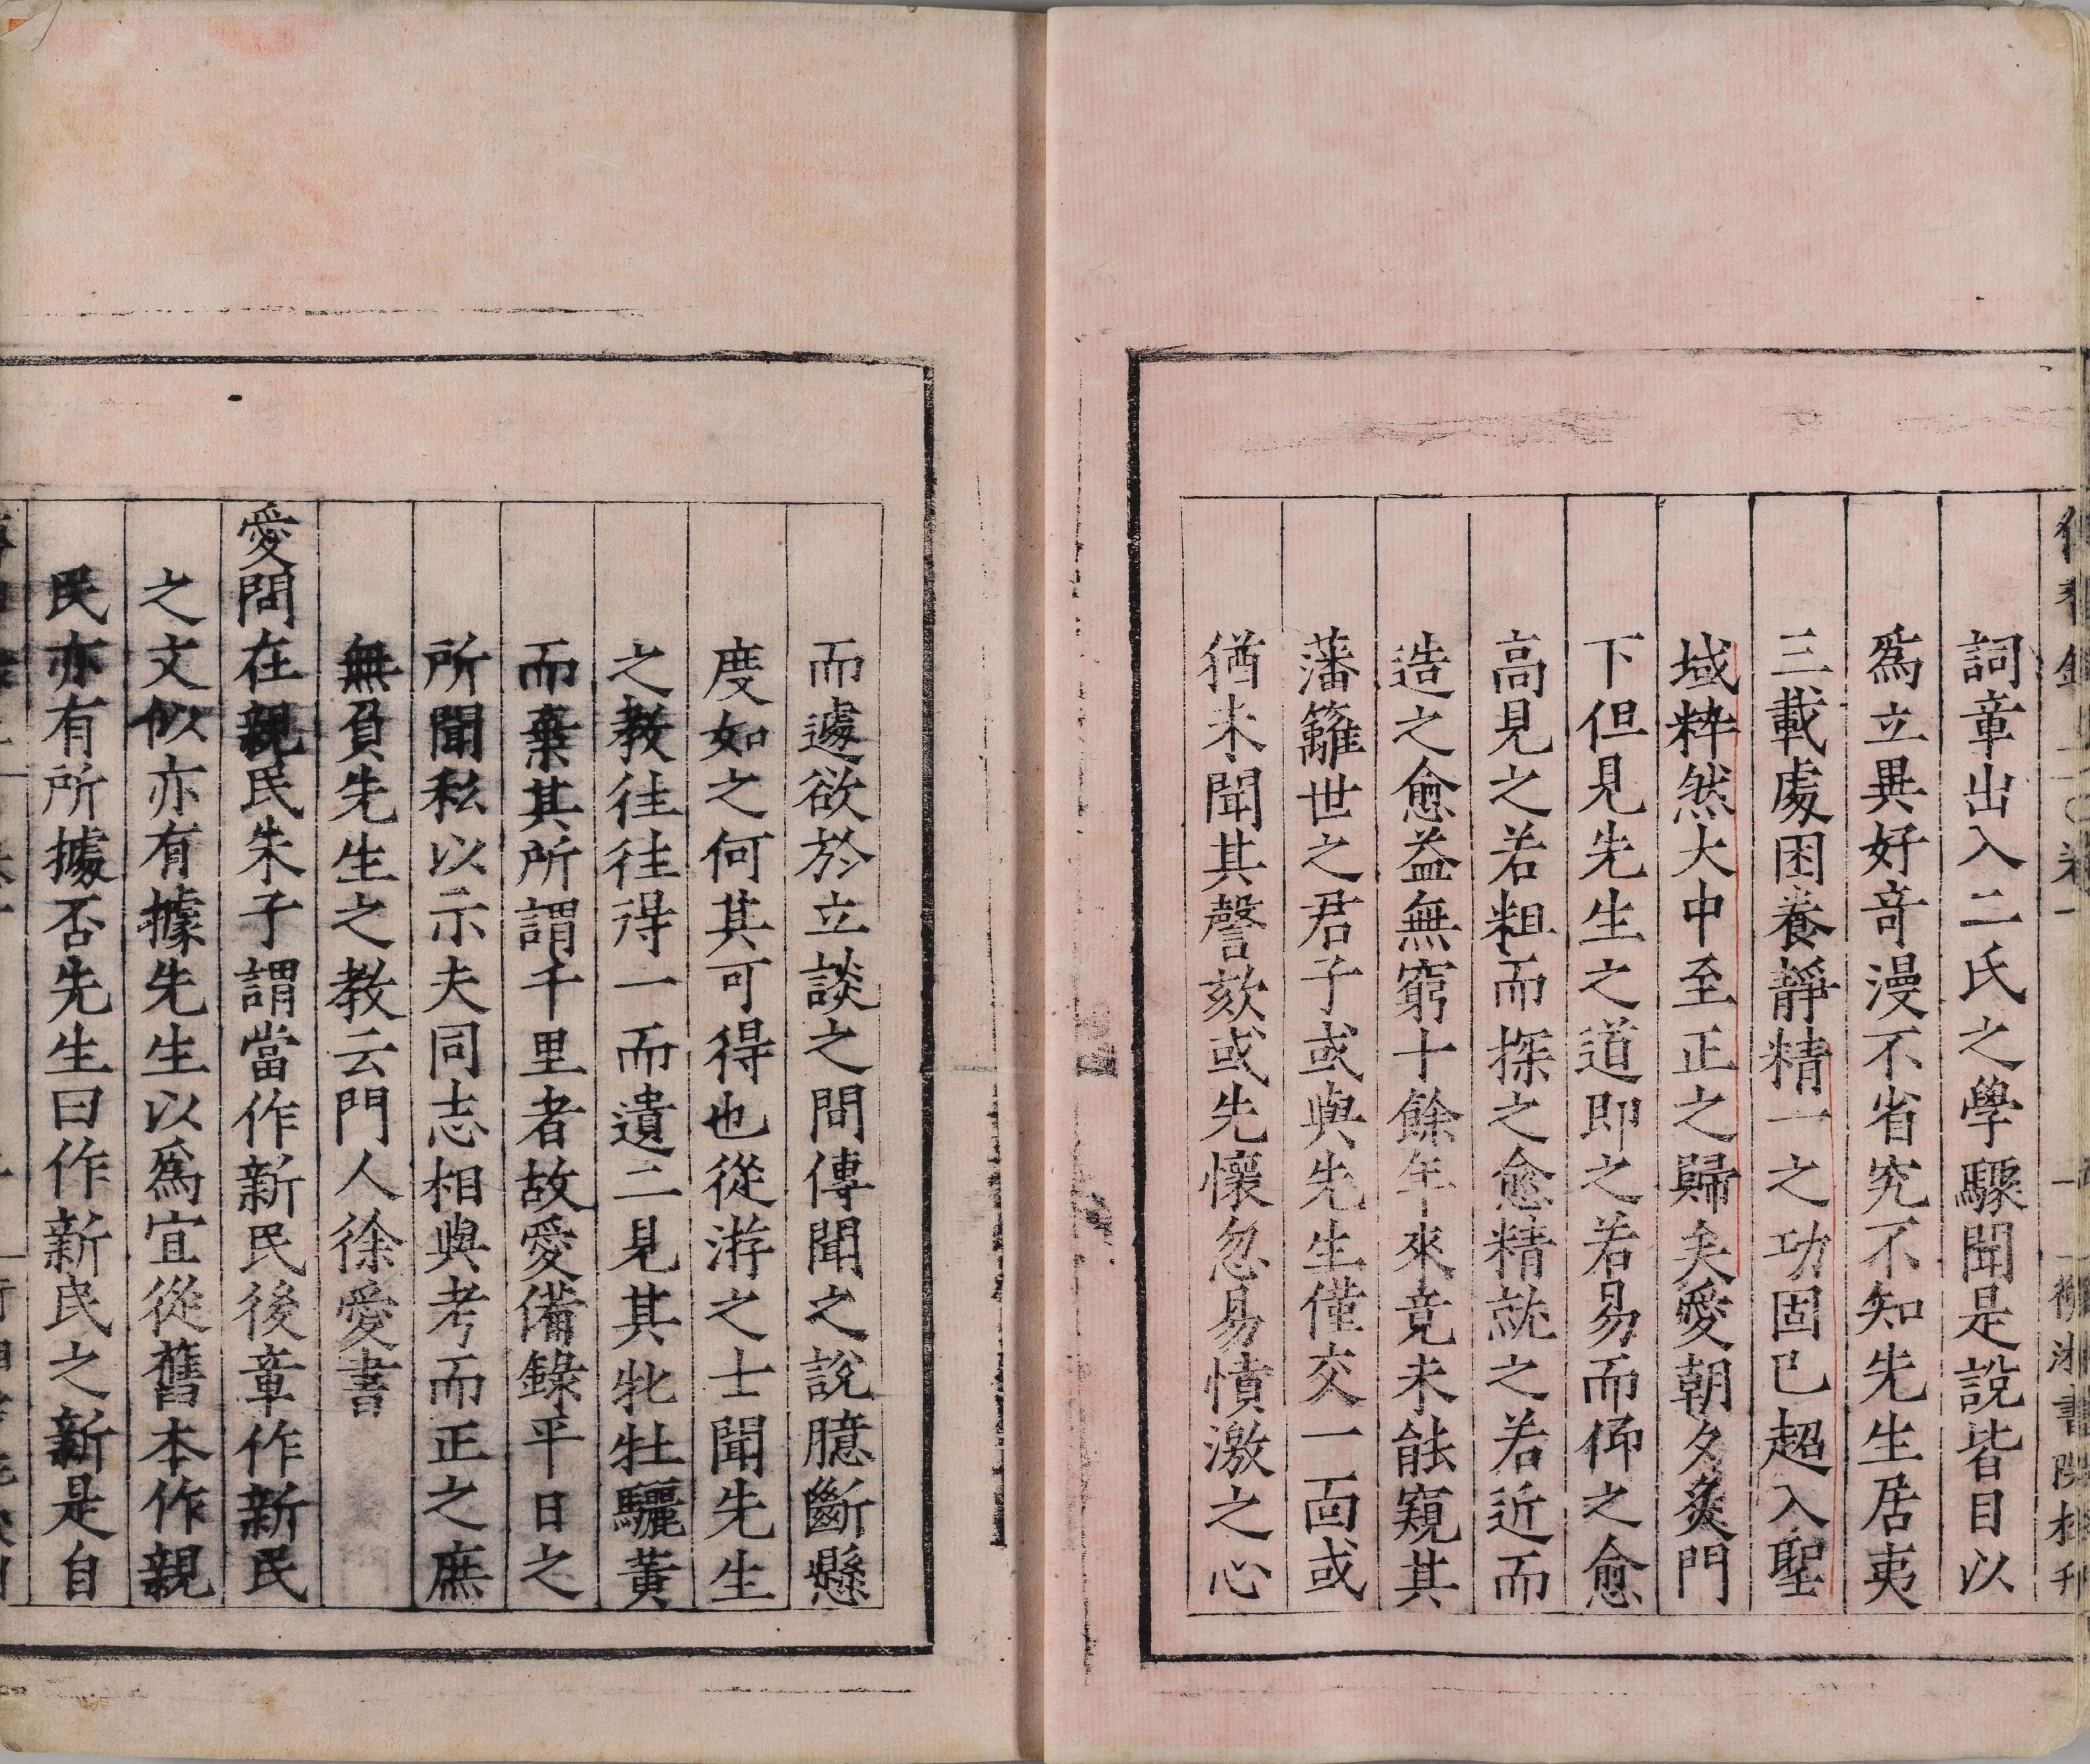 詞章出入二氏之學驟聞是說皆目以
爲立異好奇漫不省究不知先生居夷
三載處困養靜精一之功固已超入聖
域粹然大中至正之歸矣愛朝夕炙門
下但見先生之道即之若易而仰之愈
高見之若粗而探之愈精就之若近而
造之愈益無窮十餘年來竟未能窺其
藩籬世之君子或與先生僅交一面或
猶未聞其謦欬或先懷忽易憤激之心
而遽欲於立談之間傳聞之說臆斷懸
度如之何其可得也從游之士聞先生
之教往往得一而遺二見其牝牡驪黃
而棄其所謂千里者故愛備錄平日之
所聞私以示夫同志相與考而正之庶
無負先生之教云門人徐愛書
愛問在親民朱子謂當作新民後章作新民
之文似亦有據先生以爲宜從舊本作親
民亦有所據否先生曰作新民之新是自